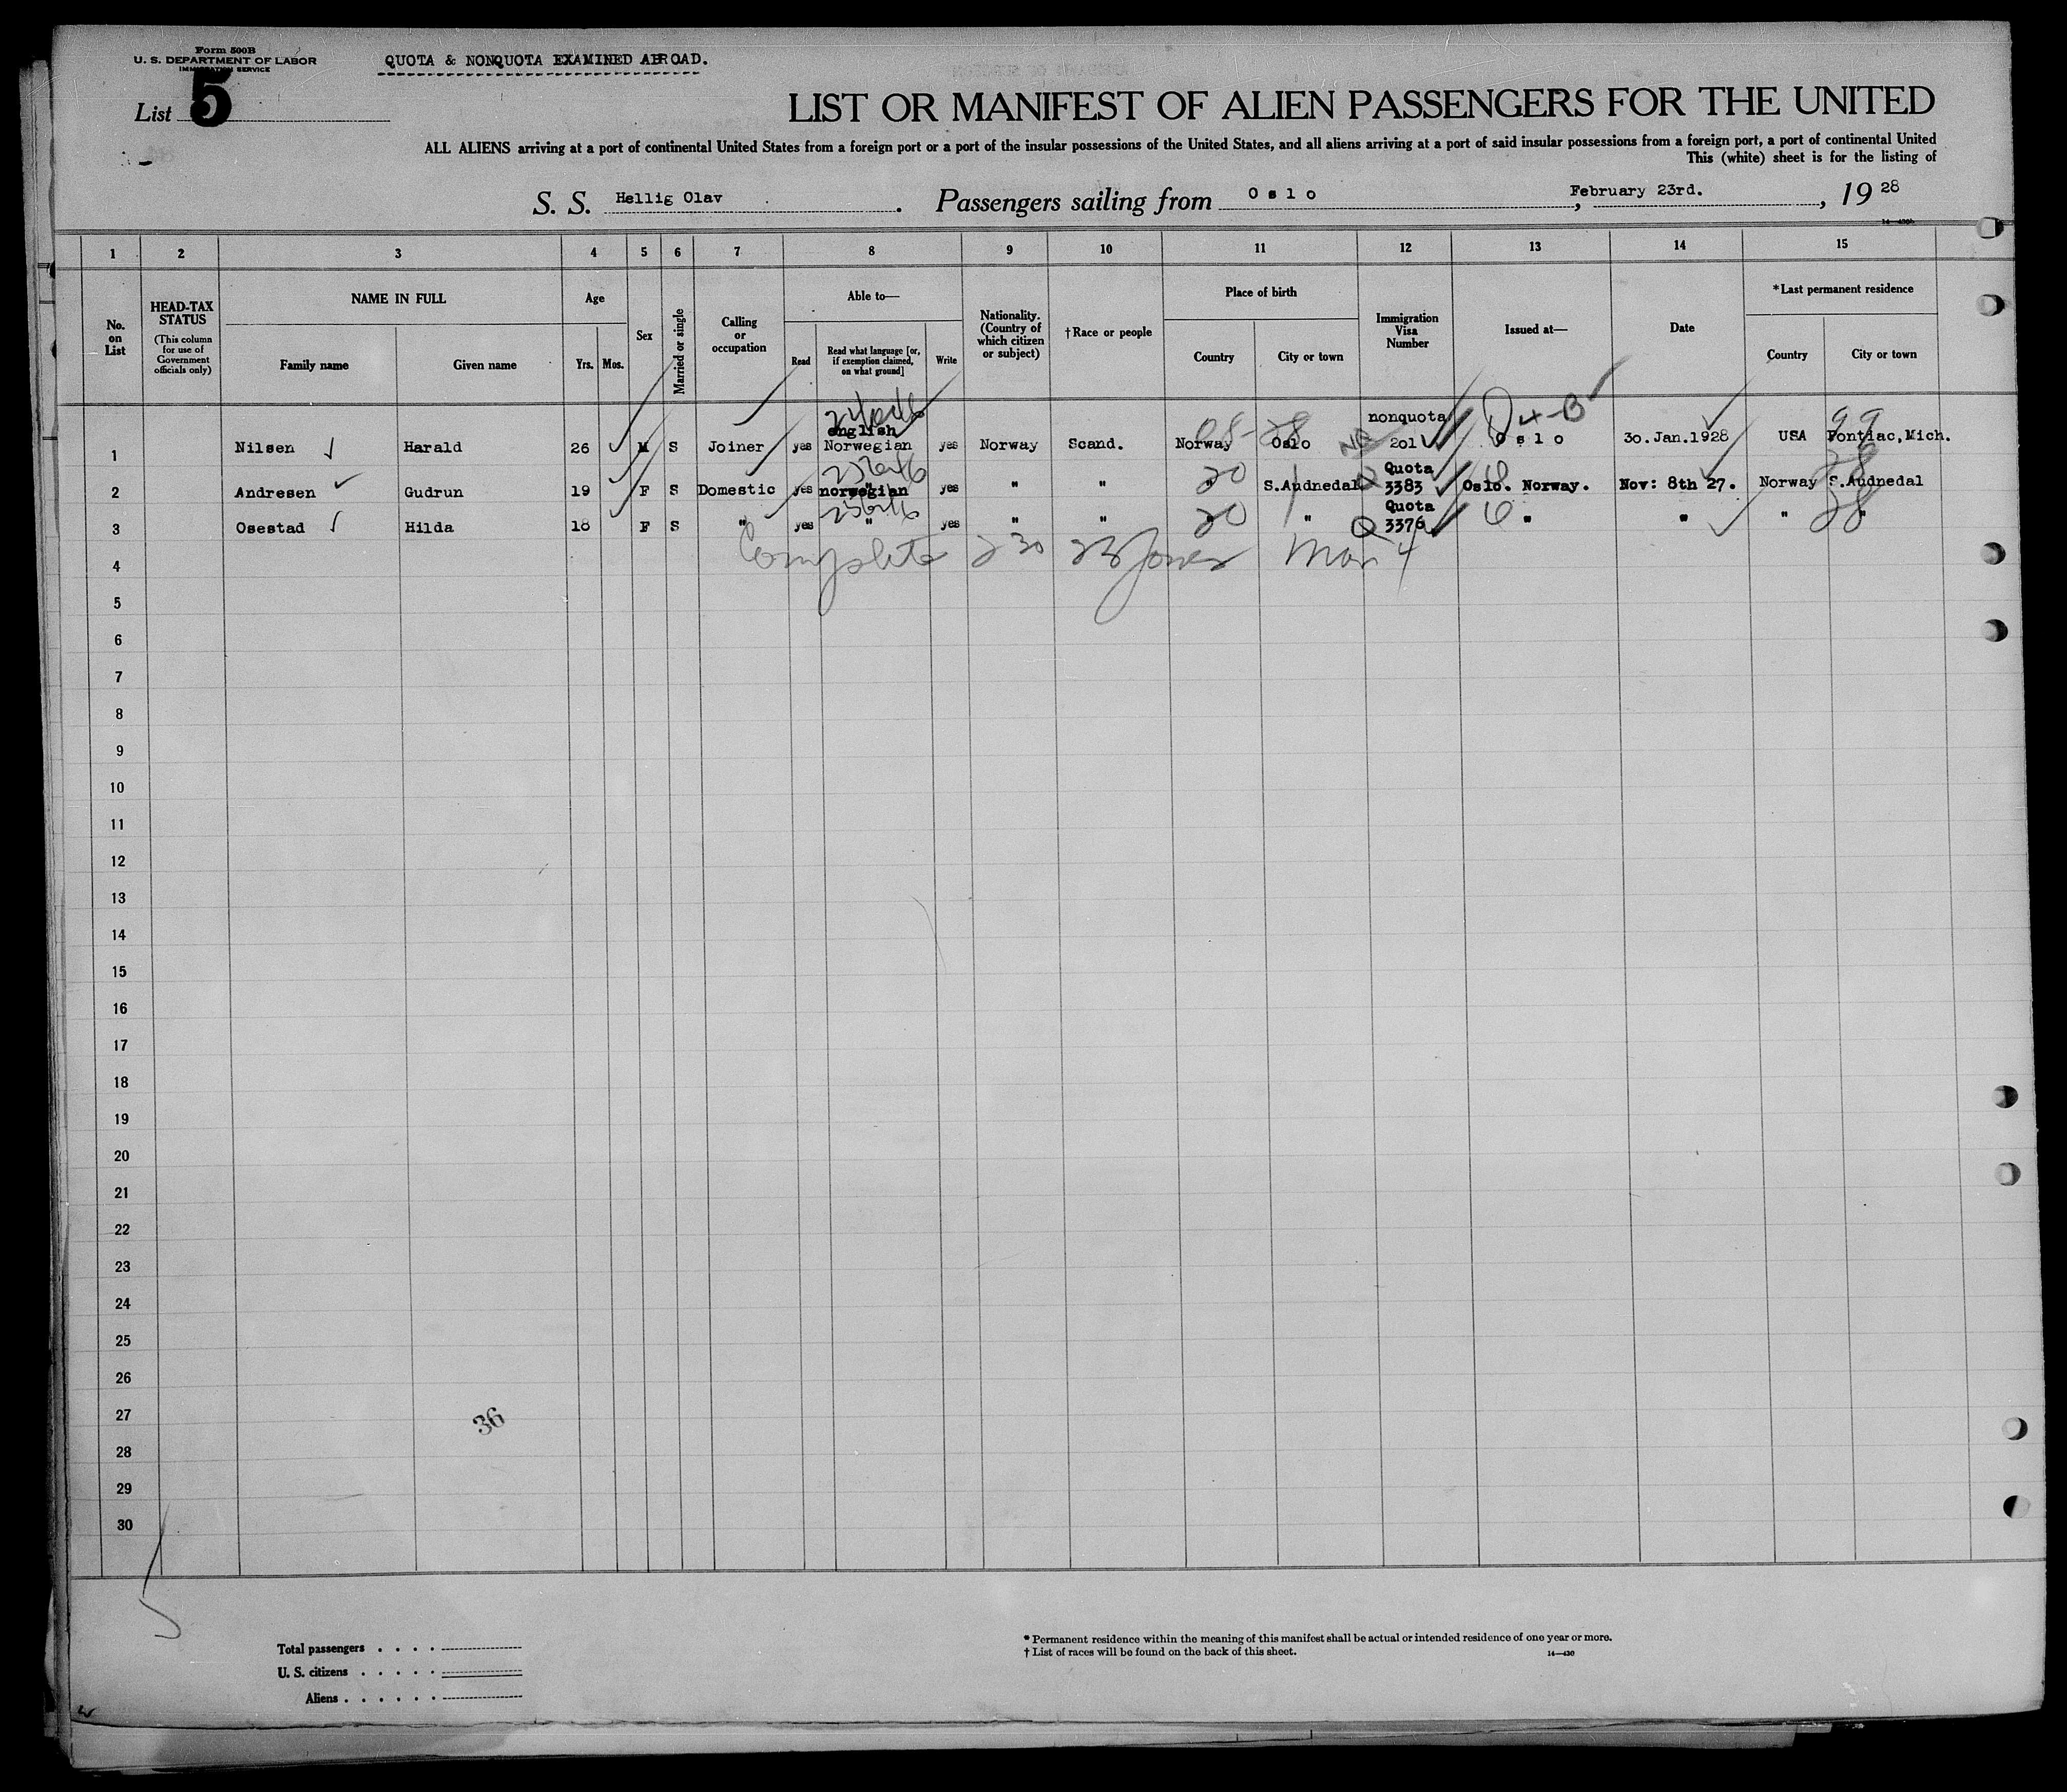 Form 500B
U. S. DEPARTMENT OF LABOR
IMMIGRATION SERVICE
QUOTA & NONQUOTA EXAMINED ABROAD.
List 5
LIST OR MANIFEST OF ALIEN PASSENGERS FOR THE UNITED
ALL ALIENS arriving at a port of continental United States from a foreign port or a port of the insular possessions of the United States, and all aliens arriving at a port of said insular possessions from a foreign port, a port of continental United
This (white) sheet is for the listing of
S. S. Hellig Olav . Passengers sailing from Oslo , February 23rd. , 19 28
1 2 3 4 5 6 7 8 9 10 11 12 13 14 15
No. on List
HEAD-TAX STATUS
(This column for use of Government officials only)
NAME IN FULL
Family name Given name
Age
Yrs. Mos.
Sex
Married or single
Calling or occupation
Able to—
Read
Read what language [or, if exemption claimed, on what ground]
Write
Nationality. (Country of which citizen or subject)
†Race or people
Place of birth
Country City or town
Immigration Visa Number
Issued at—
Date
*Last permanent residence
Country City or town
english nonquota
1 Nilsen Harald 26 M S Joiner yes Norwegian yes Norway Scand. Norway Oslo 201 Oslo 30.Jan.1928 USA Pontiac,Mich.
" Quota
2 Andresen Gudrun 19 F S Domestic yes norwegian yes " " " S.Audnedal 3383 Oslo. Norway. Nov: 8th 27. Norway S.Audnedal
Quota
3 Osestad Hilda 18 F S " yes " yes " " " 3376 " " " "
4 Complete 2 30 Jones Mar 4
5
6
7
8
9
10
11
12
13
14
15
16
17
18
19
20
21
22
23
24
25
26
27
36
28
29
30
Total passengers . . . .
U. S. citizens . . . . .
Aliens . . . . . .
* Permanent residence within the meaning of this manifest shall be actual or intended residence of one year or more.
† List of races will be found on the back of this sheet. 14—430